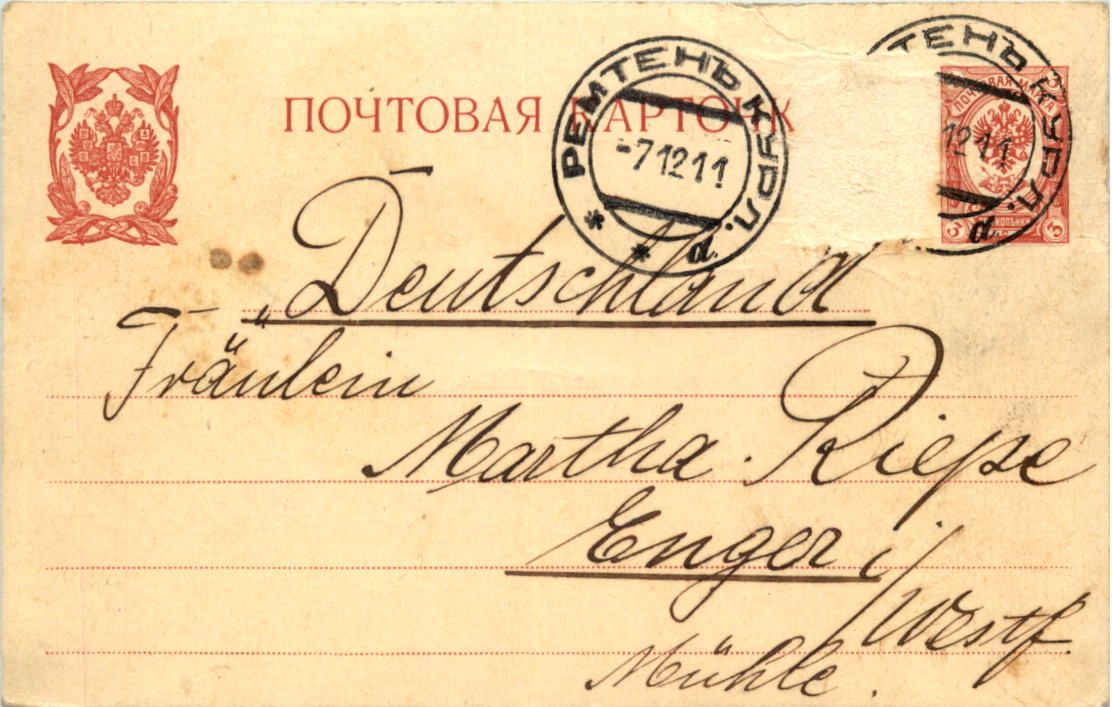 ПОЧТОВАЯ КАРТОЧК
РЕМТЕНЪ КУРЛ.
-7 12 11
a.
ТЕНЪ КУРЛ.
12 11
a.
ПОЧТОВАЯ МАРК
3
3
Deutschland
Fräulein
Martha Riepe
Enger i/
Westf.
Mühle.